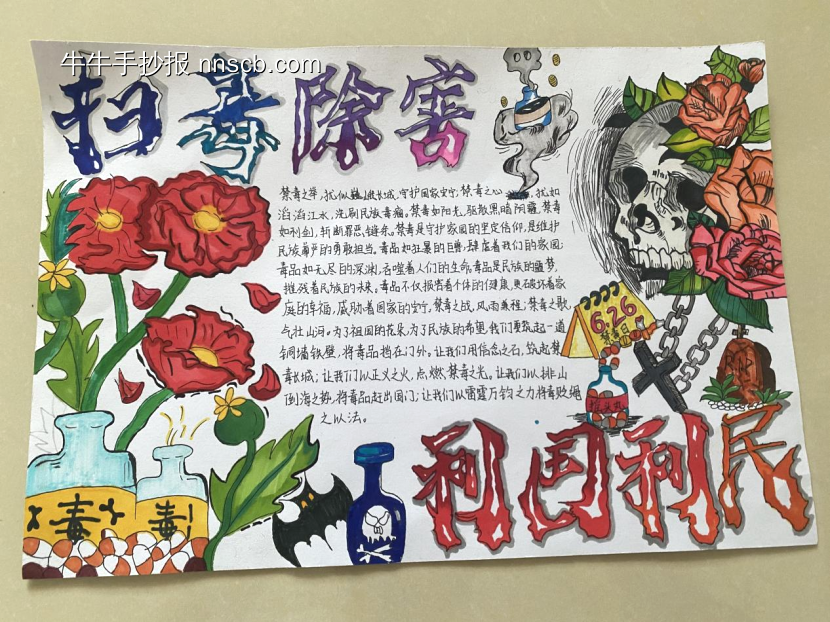 牛牛手抄报 nnscb.com
扫毒除害
禁毒之举,犹似巍巍长城,守护国家安宁;禁毒之心,犹如
滔滔江水,洗刷民族毒瘤。禁毒如阳光,驱散黑暗阴霾,禁毒
如利剑,斩断罪恶链条。禁毒是守护家园的坚定信仰,是维护
民族尊严的勇敢担当。毒品如狂暴的巨兽,肆虐着我们的家园;
毒品如无尽的深渊,吞噬着人们的生命。毒品是民族的噩梦,
摧残着民族的未来。毒品不仅损害个体的健康,更破坏着家
庭的幸福,威胁着国家的安宁。禁毒之战,风雨兼程;禁毒之歌,
气壮山河。为了祖国的花朵,为了民族的希望,我们要筑起一道
铜墙铁壁,将毒品挡在门外。让我们用信念之石,筑起禁
毒长城;让我们以正义之火,点燃禁毒之光。让我们以排山
倒海之势,将毒品赶出国门;让我们以雷霆万钧之力将毒贩绳
之以法。
6.26
禁毒日
RIP
摇头丸
毒
毒
利国利民